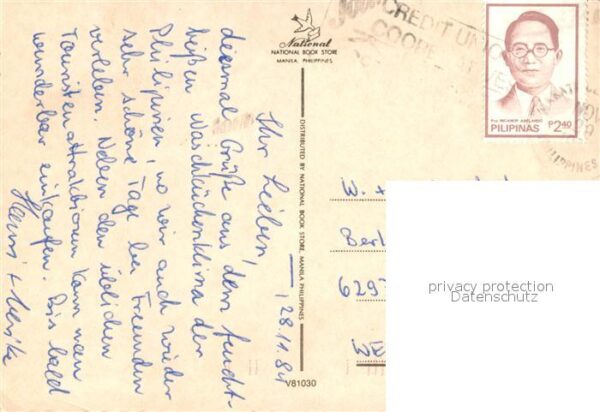 28.11.84
Ihr Lieben!
diesmal Grüße aus dem feucht-
heißen Waschküchenklima der
Philippinen, wo wir auch wieder
sehr schöne Tage bei Freunden
verleben. Neben den üblichen
Touristenattraktionen kann man
wunderbar einkaufen. Bis bald
Hanni +
National
NATIONAL BOOK STORE
MANILA, PHILIPPINES
DISTRIBUTED BY NATIONAL BOOK STORE, MANILA PHILIPPINES
V81030
CREDIT UNIO
COOPE
NICANOR ABELARDO
PILIPINAS
P2.40
W. +
Berl
629
WE
privacy protection
Datenschutz